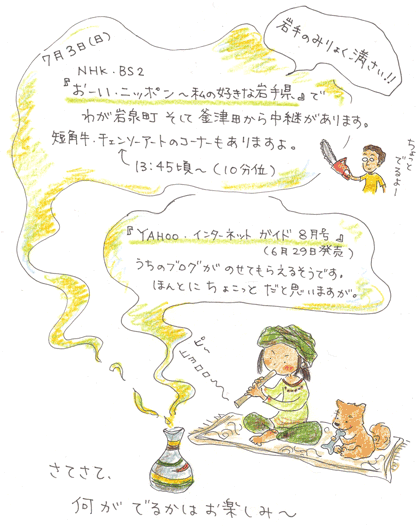 岩手のみりょく満さい!!
7月3日(日)
NHK・BS2
『おーい、ニッポン～私の好きな岩手県』で
わが岩泉町 そして 釜津田から中継があります。
短角牛・チェンソーアートのコーナーもありますよ。
13:45頃～(10分位)
ちょこっと
でるよー
『YAHOO・インターネット ガイド 8月号』
(6月29日発売)
うちのブログがのせてもらえるそうです。
ほんとに ちょこっと だと思いますが。
さてさて、
何が でるかは お楽しみ～